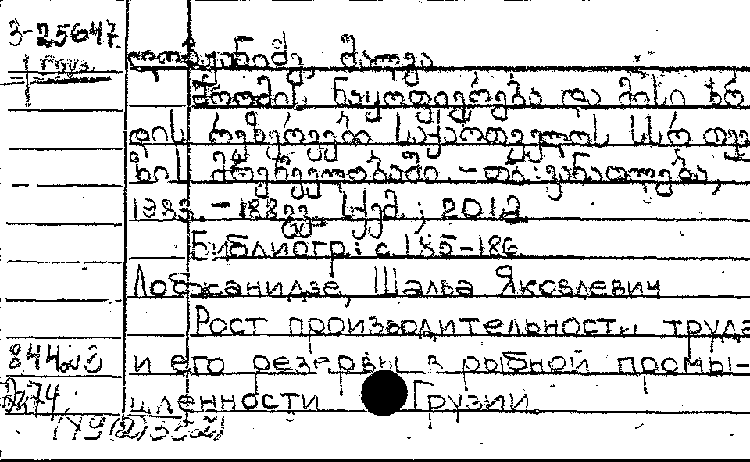 3-25647
груз.
ლობჟანიძე, შალვა
შრომის ნაყოფიერება და მისი ზრ
დის რეზერვები საქართველოს სსრ თევ
ზის მრეწველობაში. - თბ.: განათლება,
1983. - 188 გვ. სქემ.; 20
Библиогр.: с. 185-186
Лобжанидзе, Шалва Яковлевич
Рост производительности труда
и его резервы в рыбной промы-
шленности Грузии